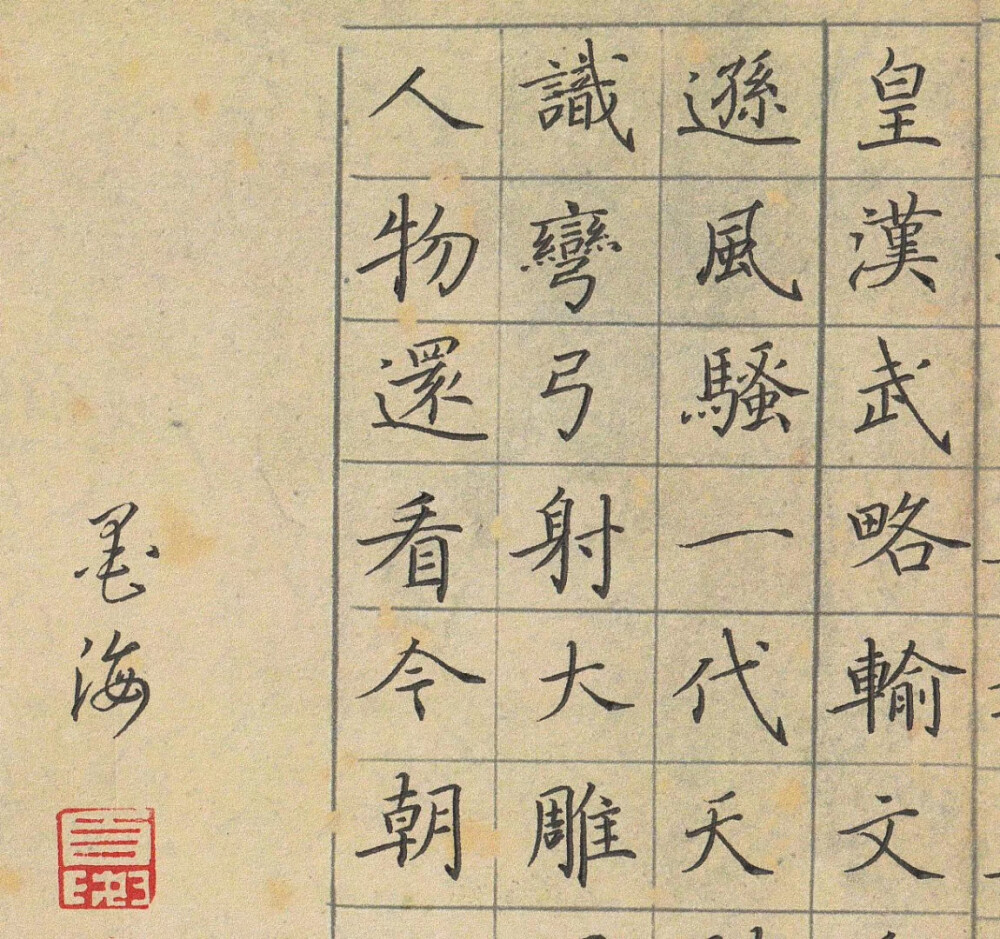 皇漢武略輸文
遜風騷一代天
識彎弓射大雕
人物還看今朝
墨海